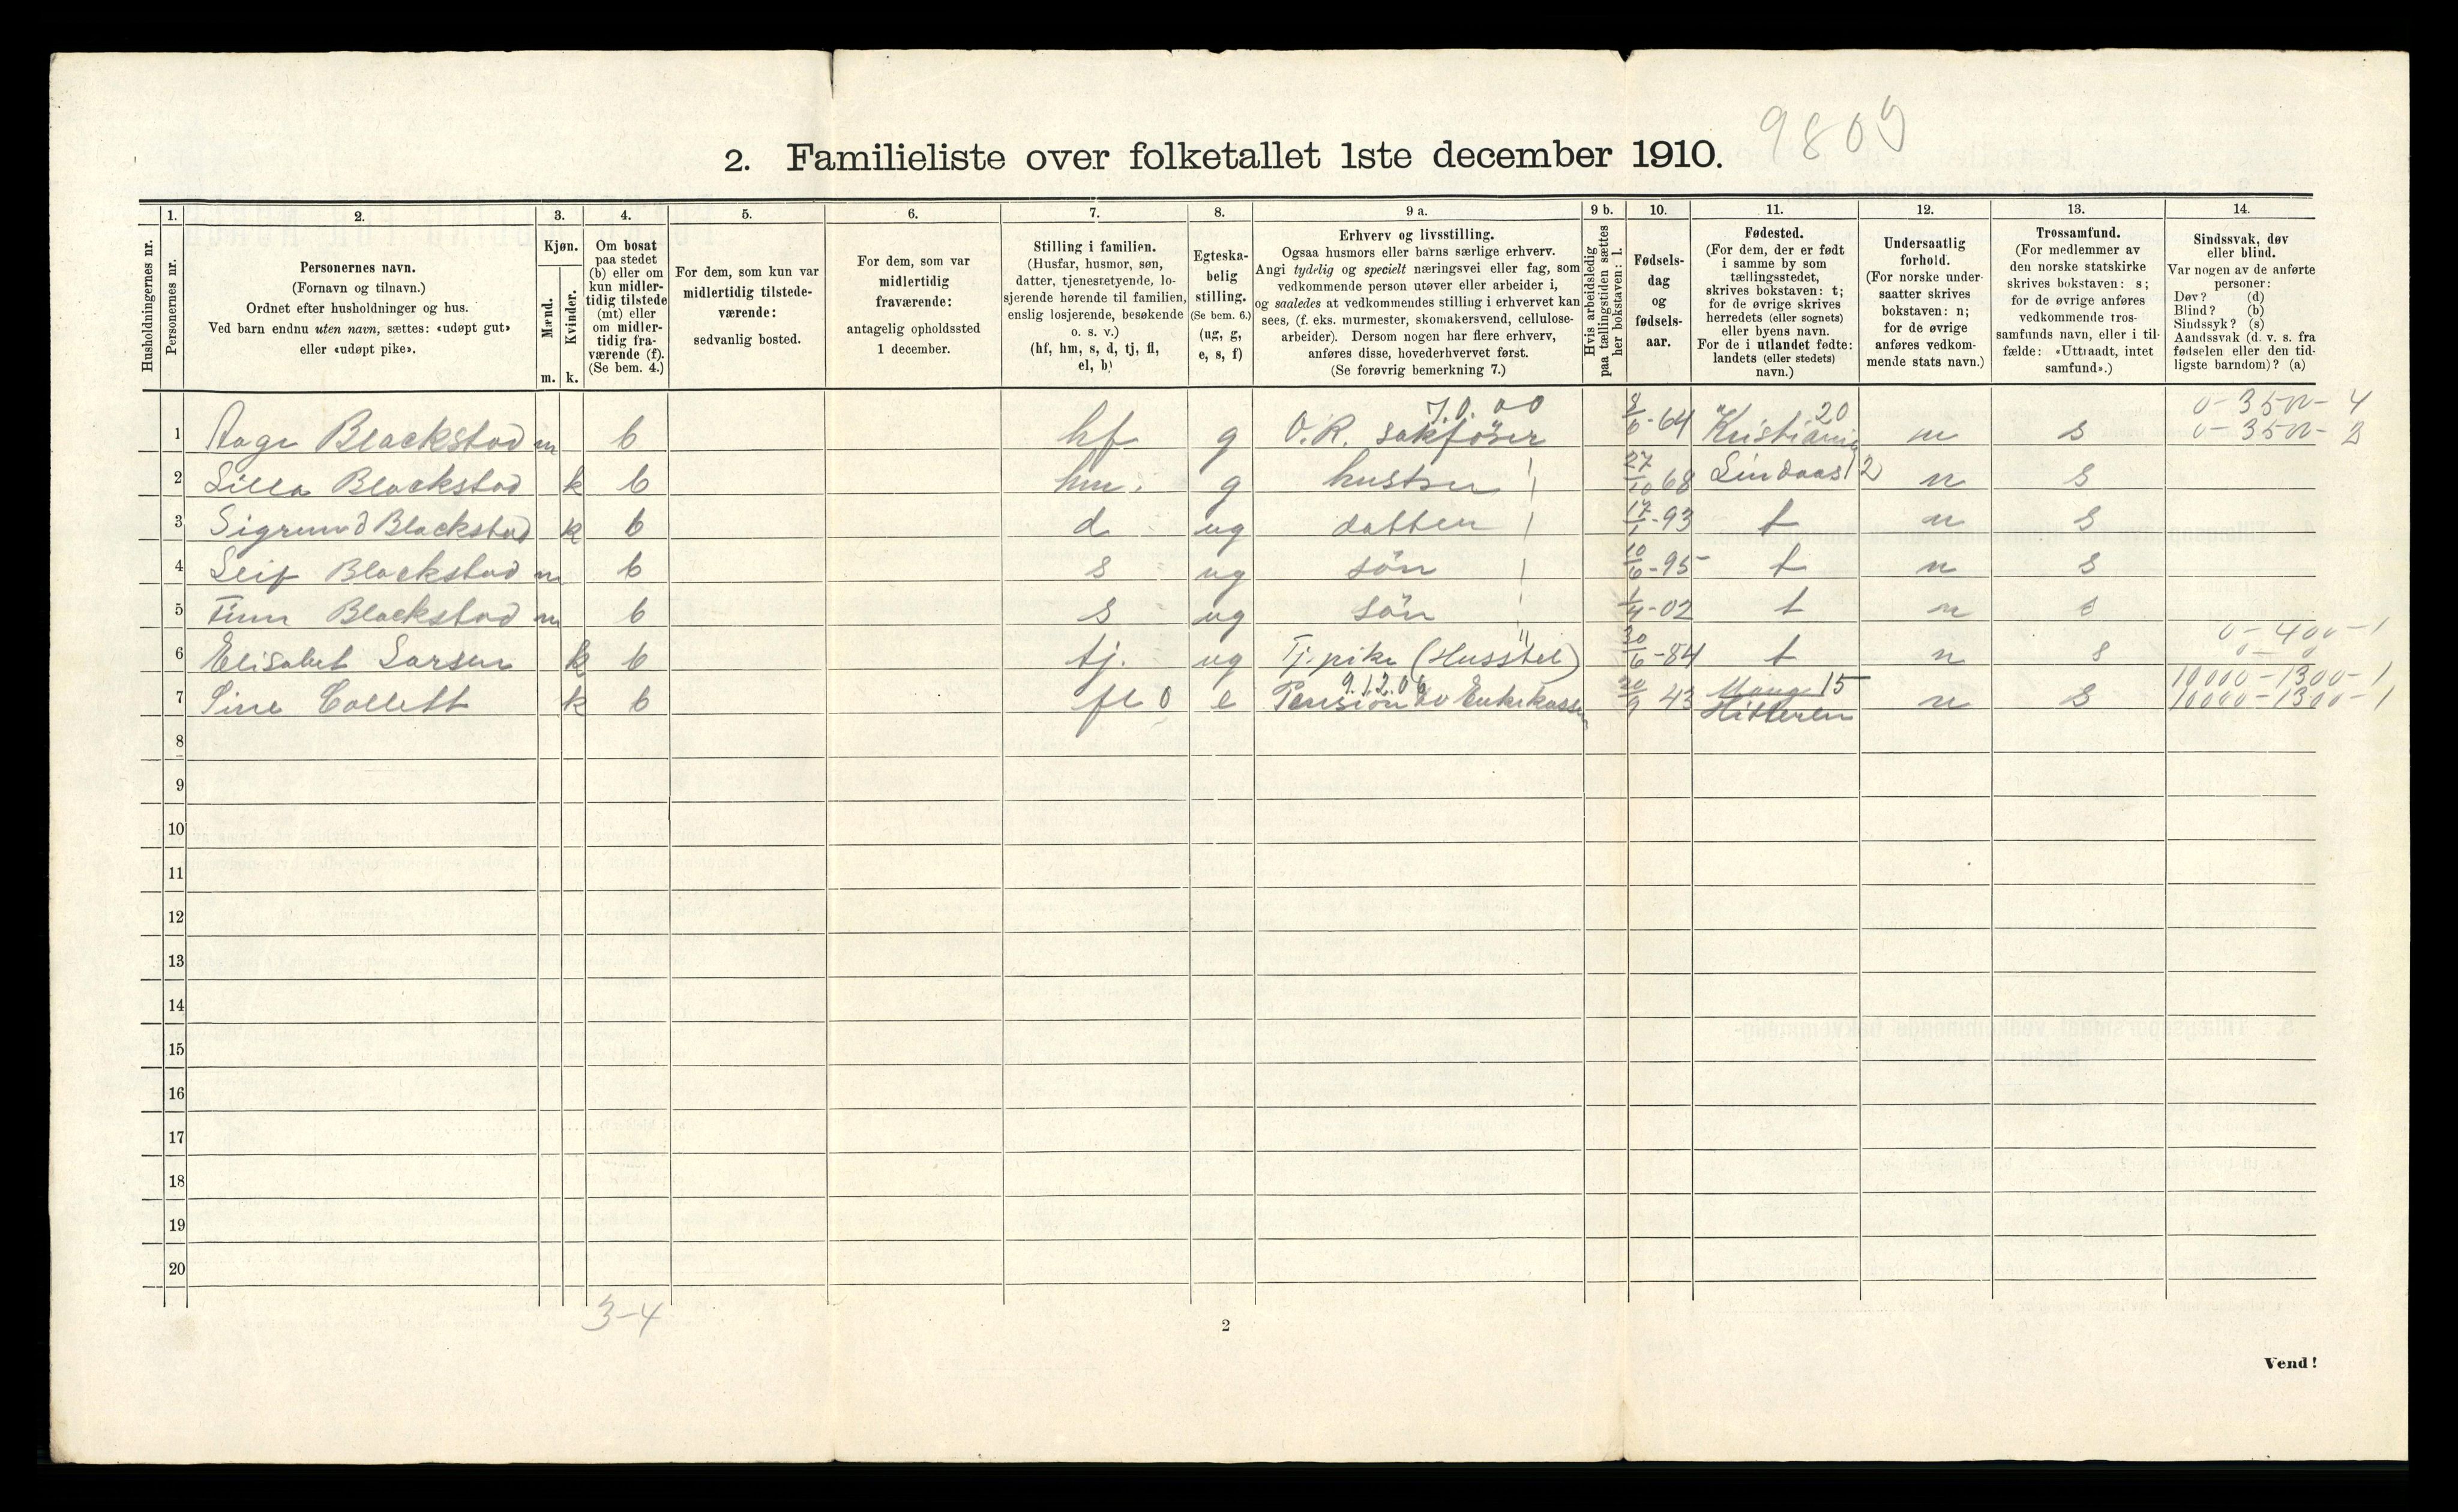 9809
2. Familieliste over folketallet 1ste december 1910.
Husholdningernes nr.
1. Personernes nr.
2. Personernes navn.
(Fornavn og tilnavn.)
Ordnet efter husholdninger og hus.
Ved barn endnu uten navn, sættes: «udøpt gut»
eller «udøpt pike».
3. Kjøn.
Mænd. m.
Kvinder. k.
4. Om bosat
paa stedet
(b) eller om
kun midler-
tidig tilstede
(mt) eller
om midler-
tidig fra-
værende (f).
(Se bem. 4.)
5. For dem, som kun var
midlertidig tilstede-
værende:
sedvanlig bosted.
6. For dem, som var
midlertidig
fraværende:
antagelig opholdssted
1 december.
7. Stilling i familien.
(Husfar, husmor, søn,
datter, tjenestetyende, lo-
sjerende hørende til familien,
enslig losjerende, besøkende
o. s. v.)
(hf, hm, s, d, tj, fl,
el, b)
8. Egteska-
belig
stilling.
(Se bem. 6.)
(ug, g,
e, s, f)
9 a. Erhverv og livsstilling.
Ogsaa husmors eller barns særlige erhverv.
Angi tydelig og specielt næringsvei eller fag, som
vedkommende person utøver eller arbeider i,
og saaledes at vedkommendes stilling i erhvervet kan
sees, (f. eks. murmester, skomakersvend, cellulose-
arbeider). Dersom nogen har flere erhverv,
anføres disse, hovederhvervet først.
(Se forøvrig bemerkning 7.)
9 b. Hvis arbeidsledig
paa tællingstiden sættes
her bokstaven: l.
10. Fødsels-
dag
og
fødsels-
aar.
11. Fødested.
(For dem, der er født
i samme by som
tællingsstedet,
skrives bokstaven: t;
for de øvrige skrives
herredets (eller sognets)
eller byens navn.
For de i utlandet fødte:
landets (eller stedets)
navn.)
12. Undersaatlig
forhold.
(For norske under-
saatter skrives
bokstaven: n;
for de øvrige
anføres vedkom-
mende stats navn.)
13. Trossamfund.
(For medlemmer av
den norske statskirke
skrives bokstaven: s;
for de øvrige anføres
vedkommende tros-
samfunds navn, eller i til-
fælde: «Uttraadt, intet
samfund».)
14. Sindssvak, døv
eller blind.
Var nogen av de anførte
personer:
Døv? (d)
Blind? (b)
Sindssyk? (s)
Aandssvak (d. v. s. fra
fødselen eller den tid-
ligste barndom)? (a)
7.0.00 20 0-3500-4
1 Aage Blackstad m b hf g O.R. sakfører 8/6-64 Kristiania n s 0-3500-3
2 Lilla Blackstad k b hm. g hustru 27/10 68 Lindaas 12 n s
3 Sigrund Blackstad k b d ug datter 17/1-93 t n s
4 Leif Blackstad m b s ug søn 10/6-95 t n s
5 Finn Blackstad m b s ug søn 1/4-02 t n s
0-400-1
6 Elisabet Larsen k b tj. ug Tj. pike (Husstel) 30/6-84 t n s
9.12.06 15 10000-1300-1
7 Sine Collett k b fl 0 e Pension av Enkekassen 20/9 43 Hitteren n s 10000-1300-1
8
9
10
11
12
13
14
15
16
17
18
19
20
3-4
2
Vend!